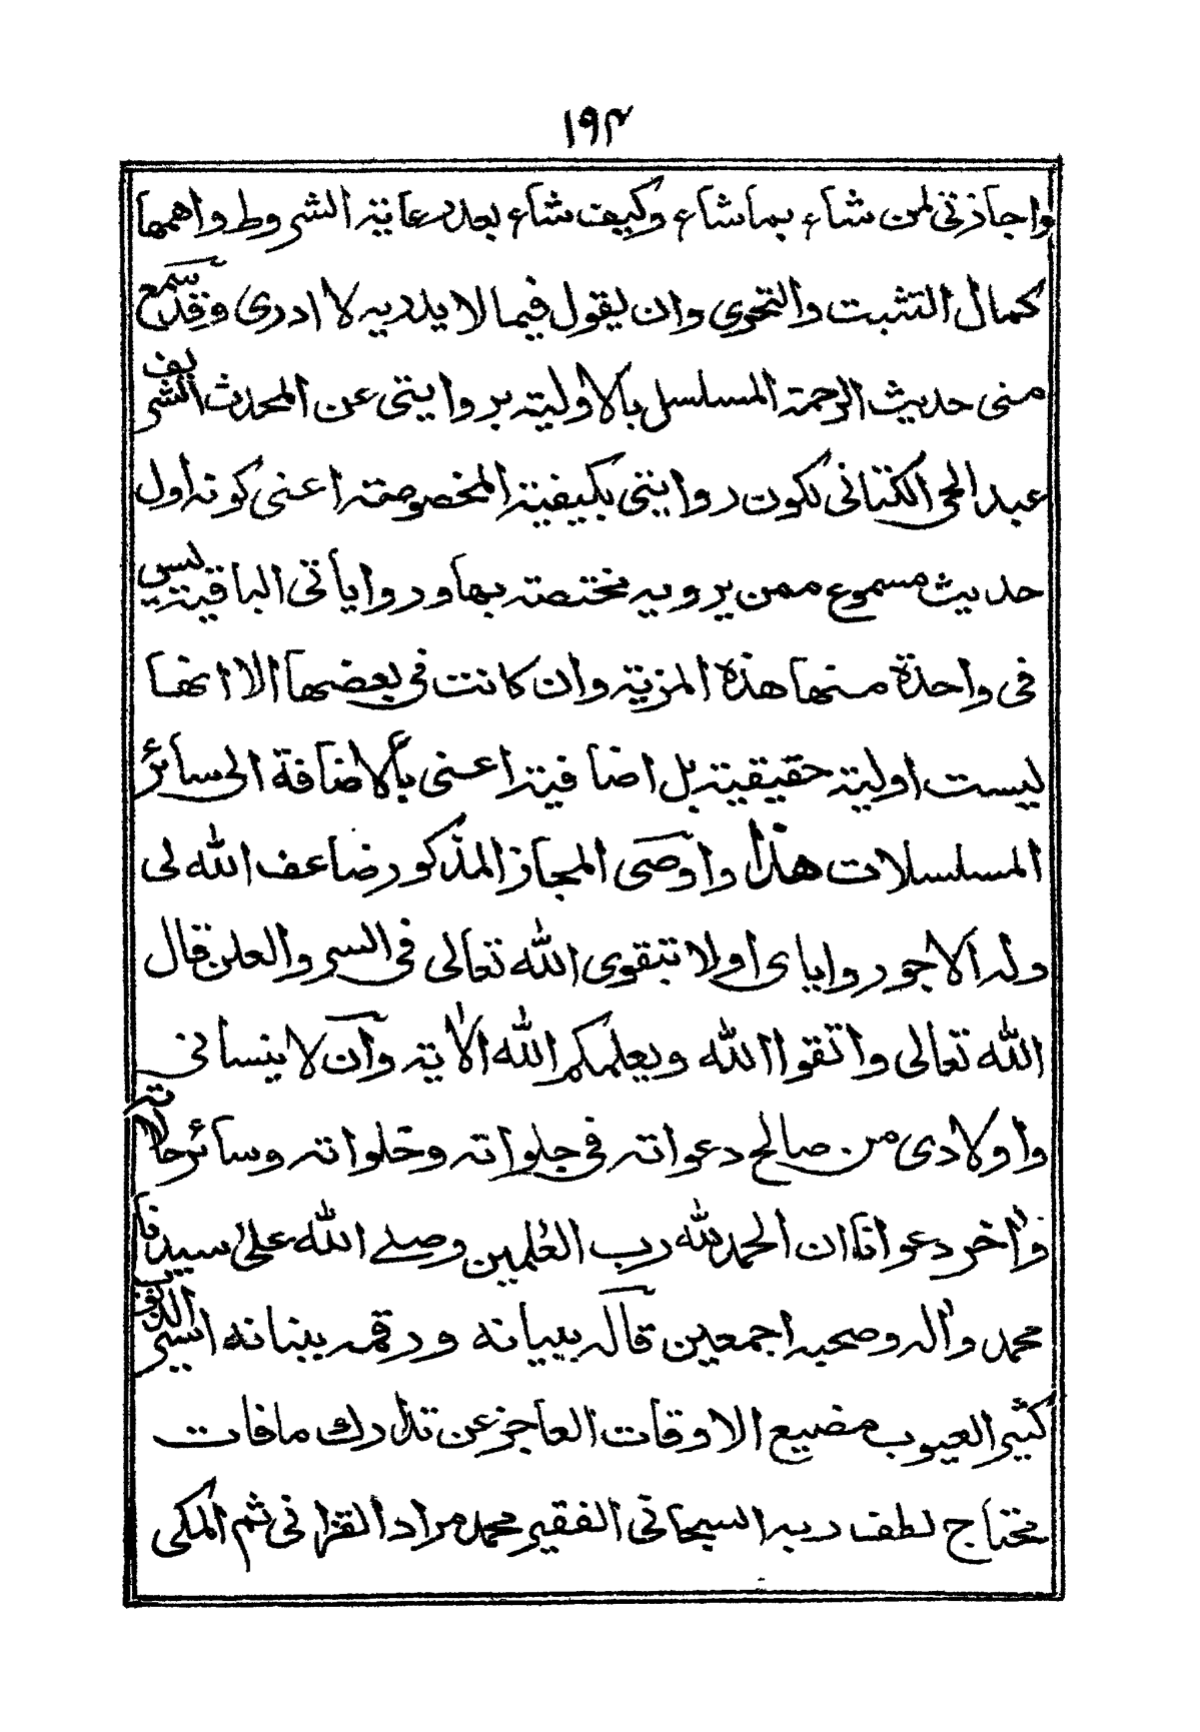 ١٩٣
واجازتى لمن شاء بماشاء وكيف شاء بعد رعاية الشروط واهمها
كمال التثبت والتحرى وان يقول فيما لا يدريه لا ادرى وقد سمع
منى حديث الرحمة المسلسل بالاولية بروايتى عن المحدث الشريف
عبد الحى الكتانى لكون روايتى بكيفية المخصوصة اعنى كونه اول
حديث مسموع ممن يرويه مختصة بها وروايأتى الباقية ليس
فى واحدة منها هذه المزية وان كانت فى بعضها الا انها
ليست اولية حقيقية بل اضافية اعنى بألاضافة الى سائر
المسلسلات هذا واوصى المجاز المذكور ضاعف الله لى
وله الاجور واياى اولا بتقوى الله تعالى فى السر والعلن قال
الله تعالى واتقوا الله ويعلمكم الله الأية وآن لا ينسانى
واولادى من صالح دعواته فى جلواته وخلواته وسائر حالاته
وأخر دعوانا ان الحمد لله رب العلمين وصلے الله على سيدنا
محمد وأله وصحبه اجمعين قاله ببيانه ورقمه ببنانه اسير الذنوب
كثير العيوب مضيع الاوقات العاجز عن تدارك مافات
محتاج لطف ربه السبحانى الفقير محمد مراد القزانى ثم المكى